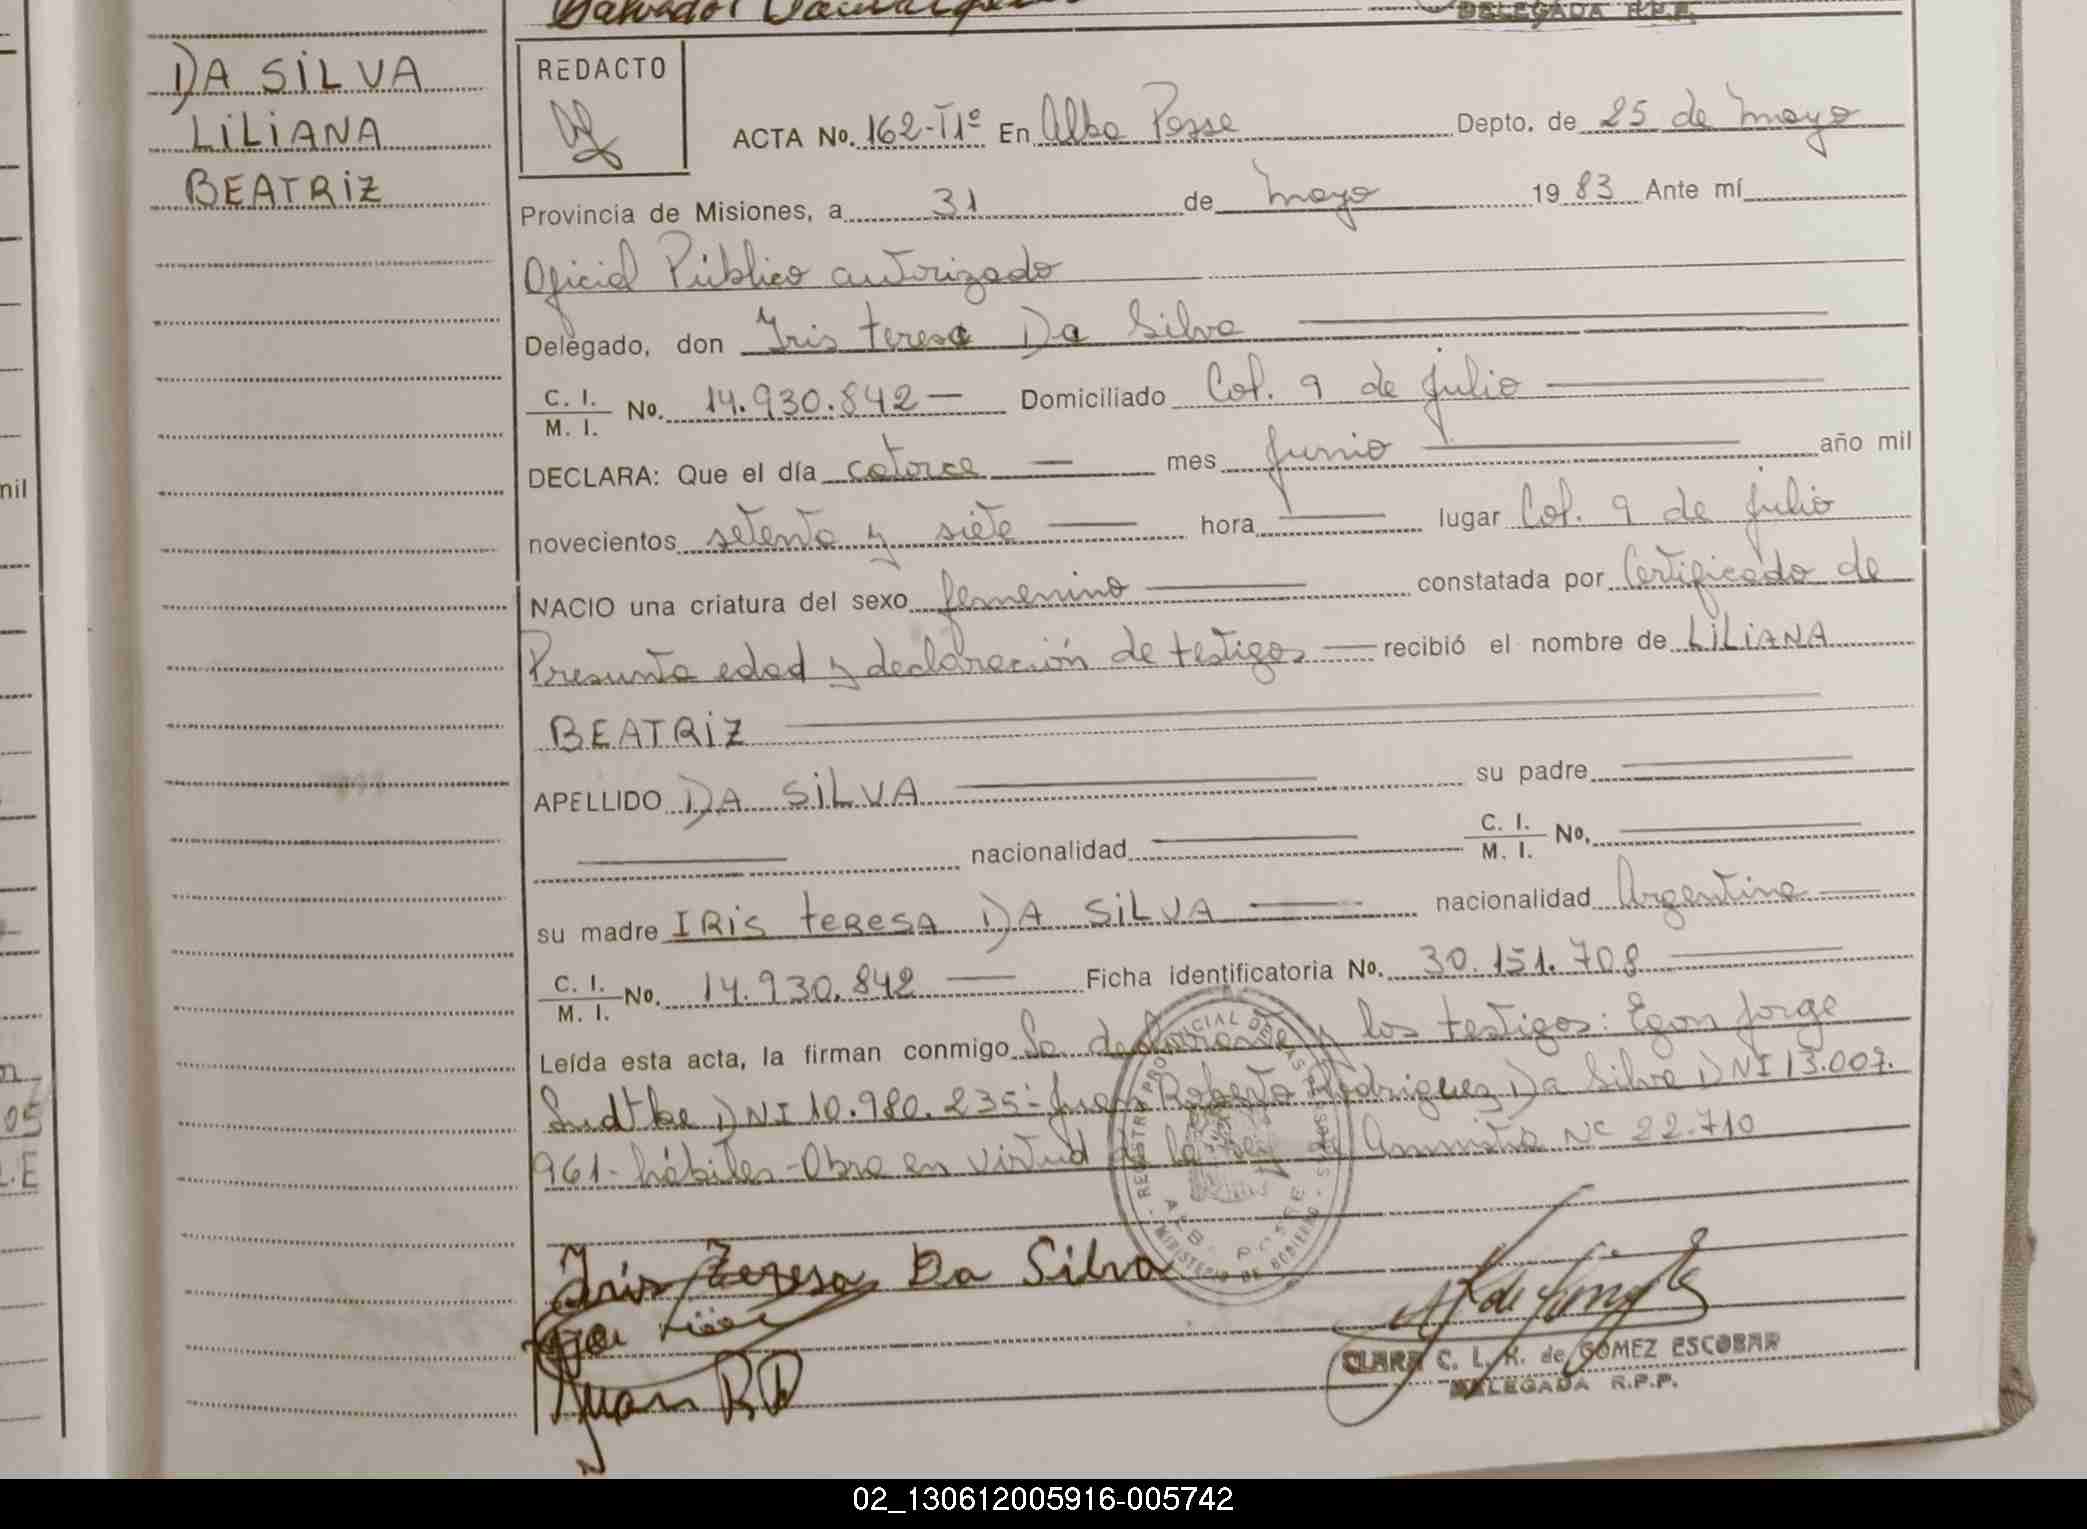 DELEGADA R.P.P.
DA SILVA
LILIANA
BEATRIZ
REDACTO
ACTA No. 162-IIº En Alba Posse Depto. de 25 de Mayo
Provincia de Misiones, a 31 de Mayo 19 83 Ante mí
Oficial Público autorizado
Delegado, don Iris teresa Da Silva
C. I. / M. I. No. 14.930.842 — Domiciliado Col. 9 de Julio
DECLARA: Que el día catorce — mes Junio — año mil
novecientos setenta y siete — hora — lugar Col. 9 de Julio
NACIO una criatura del sexo femenino — constatada por Certificado de
Presunta edad y declaración de testigos — recibió el nombre de LILIANA
BEATRIZ
APELLIDO DA SILVA — su padre —
— nacionalidad — C. I. / M. I. No. —
su madre IRIS teRESA DA SILVA — nacionalidad Argentina —
C. I. / M. I. No. 14.930.842 — Ficha identificatoria No. 30.151.708 —
Leída esta acta, la firman conmigo La declarante y los testigos: Egon Jorge
Ludtke DNI 10.980.235- Juan Roberto Rodriguez Da Silva DNI 13.007.
961- hábiles- Obra en virtud de la ley de Amnistía Nº 22.710
REGISTRO PROVINCIAL DE LAS PERSONAS
ALBA POSSE
MINISTERIO DE GOBIERNO
Iris Teresa Da Silva
Juan R D
CLARA C. L. K. de GOMEZ ESCOBAR
DELEGADA R.P.P.
nil
05
L.E
02_130612005916-005742